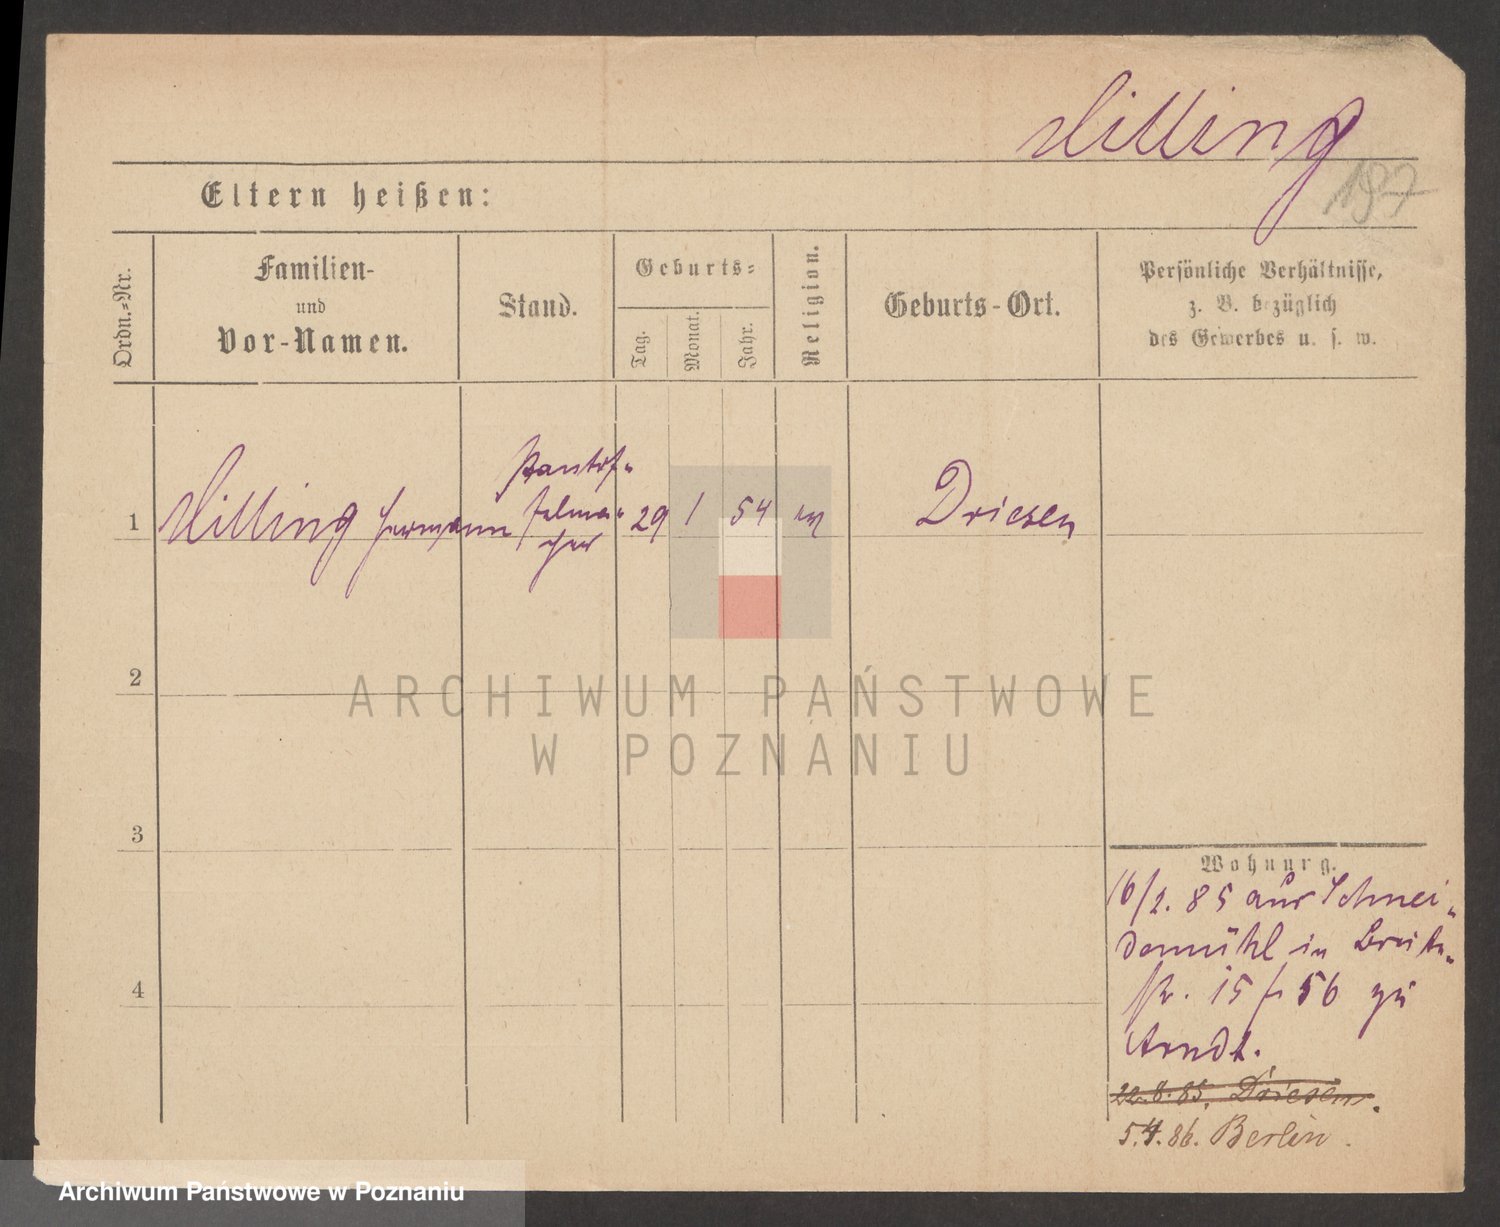 Willing
197
Eltern heißen:
Ordn.-Nr.
Familien-
und
Vor-Namen.
Stand.
Geburts-
Tag.
Monat.
Jahr.
Religion.
Geburts-Ort.
Persönliche Verhältnisse,
z. B. bezüglich
des Gewerbes u. s. w.
1
Willing Hermann
Pantof-
felma-
cher
29
1
54
Driesen
2
3
4
ARCHIWUM PAŃSTWOWE
W POZNANIU
Wohnung.
16/2. 85 aus Schnei-
demühl in Breite-
str. 15 56 zu
Arndt.
22.8.85. Driesen.
5.4.86. Berlin.
Archiwum Państwowe w Poznaniu